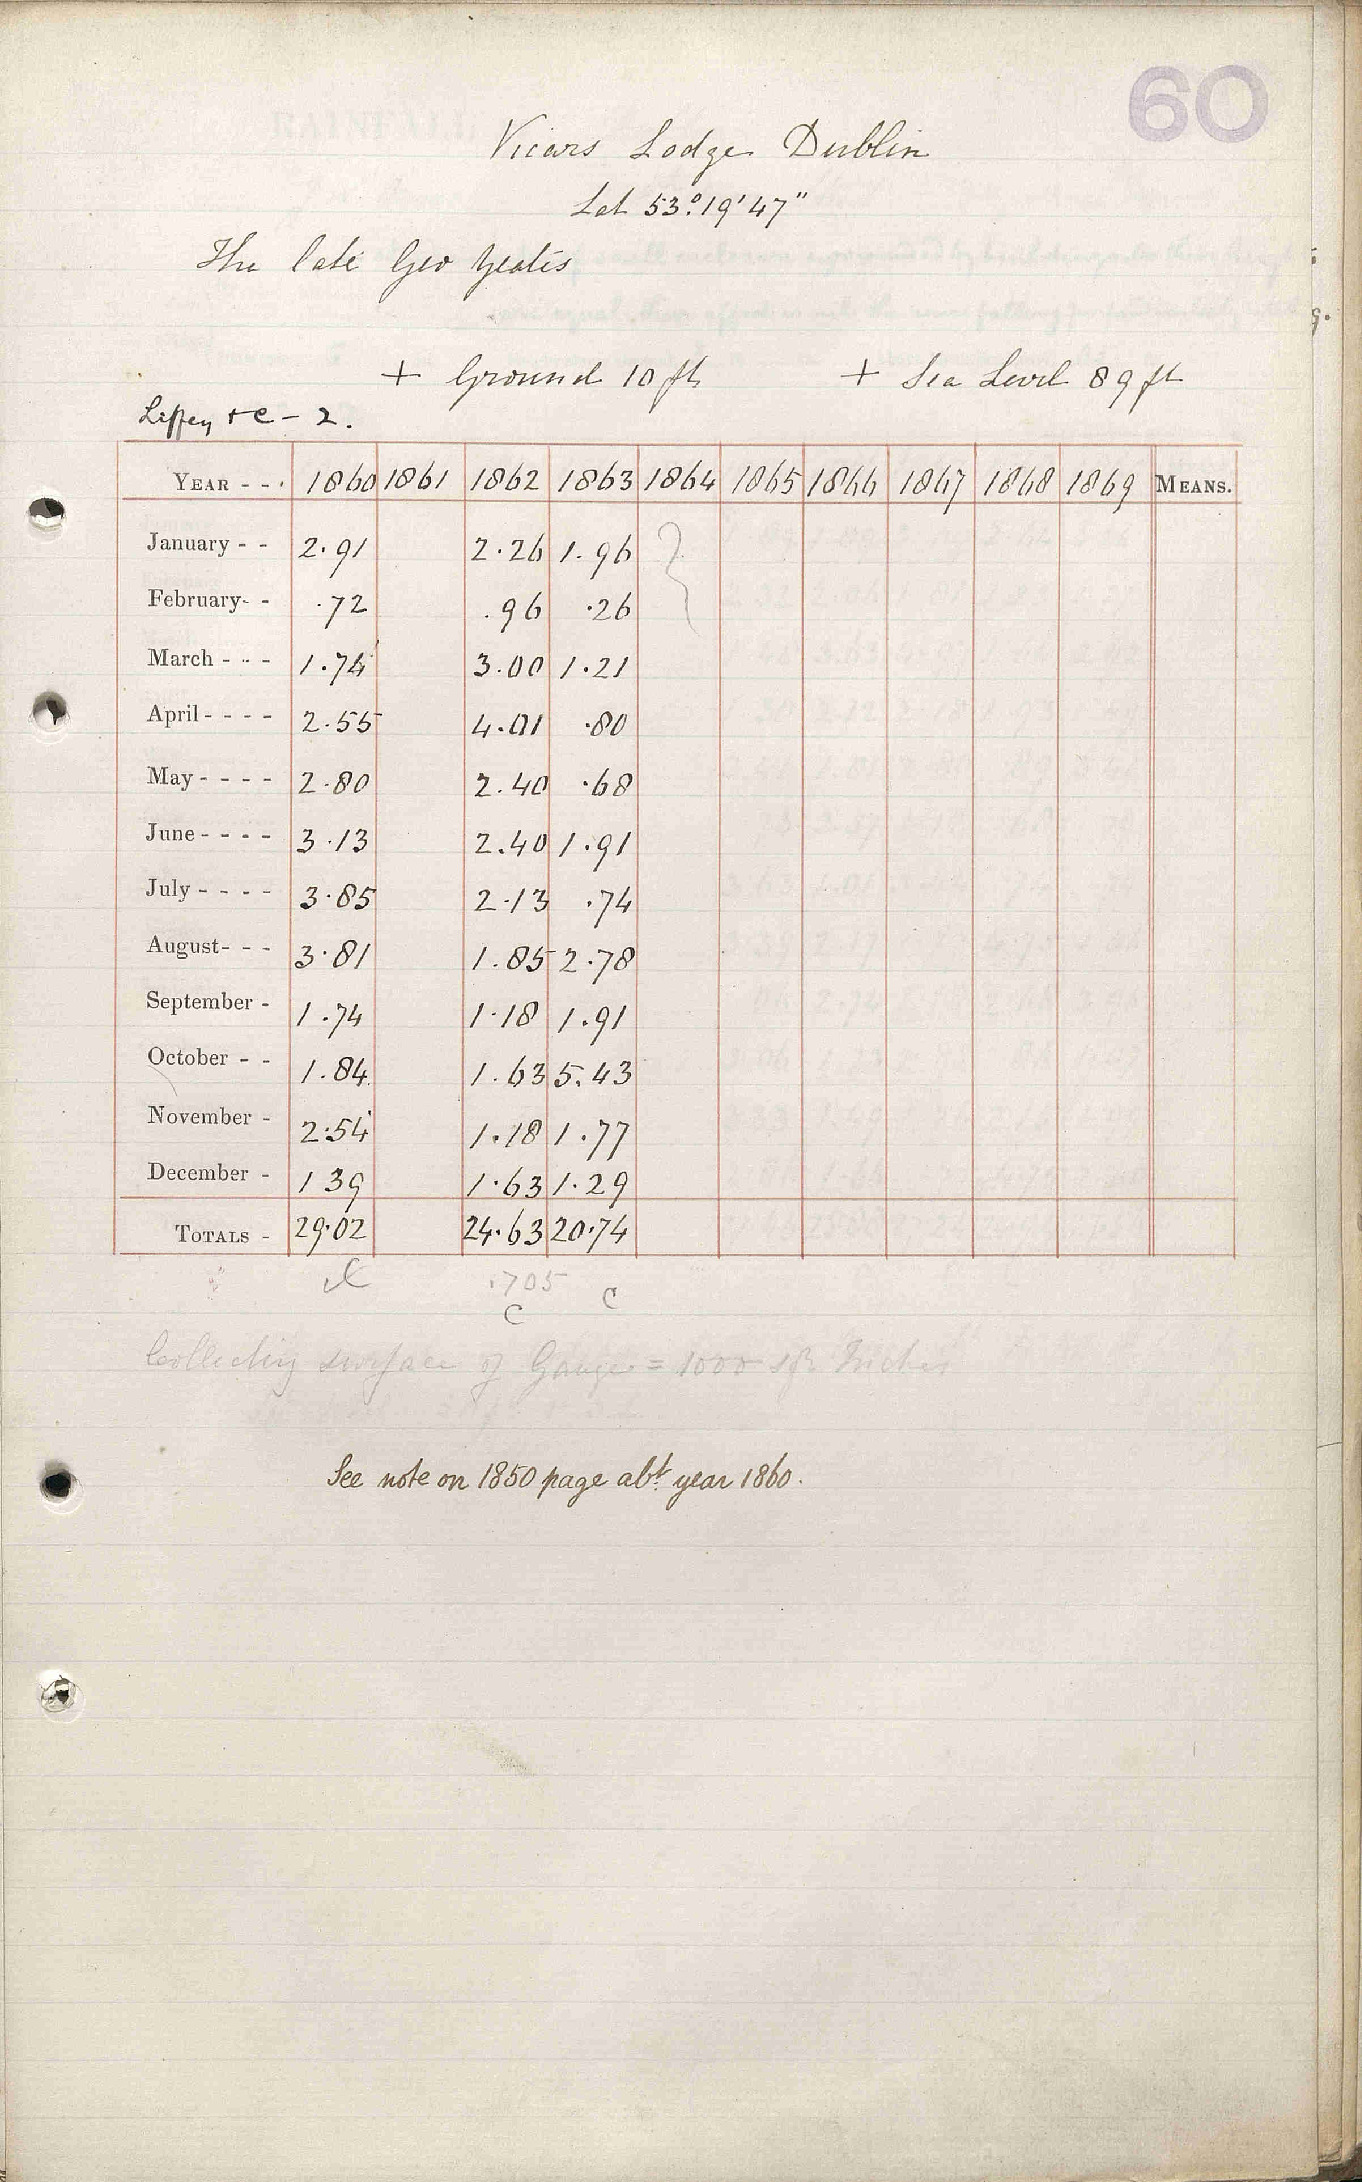 60
Vicars Lodge Dublin
Lat 53°.19'47"
The late Geo Yeates
+ Ground 10 ft + Sea Level 89 ft
Liffey + C - 2.
YEAR - - . 1860 1861 1862 1863 1864 1865 1866 1867 1868 1869 MEANS.
January - - 2.91 2.26 1.96
February- - .72 .96 .26
March - - - 1.74 3.00 1.21
April - - - - 2.55 4.01 .80
May - - - - 2.80 2.40 .68
June - - - - 3.13 2.40 1.91
July - - - - 3.85 2.13 .74
August- - - 3.81 1.85 2.78
September - 1.74 1.18 1.91
October - - 1.84 1.63 5.43
November - 2.54 1.18 1.77
December - 1 39 1.63 1.29
TOTALS - 29.02 24.63 20.74
.705
C C
Collecting surface of Gauge = 1000 sqr Inches
See note on 1850 page abt. year 1860.